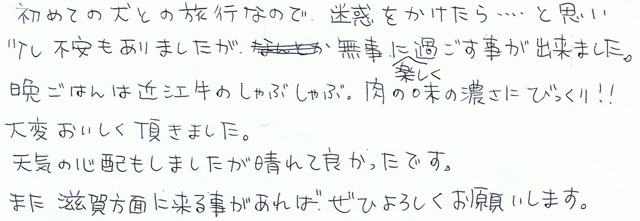 初めての犬との旅行なので、迷惑をかけたら‥‥と思い
少し不安もありましたが、無事に楽しく過ごす事が出来ました。
晩ごはんは近江牛のしゃぶしゃぶ。肉の味の濃さにびっくり!!
大変おいしく頂きました。
天気の心配もしましたが晴れて良かったです。
また滋賀方面に来る事があれば、ぜひよろしくお願いします。